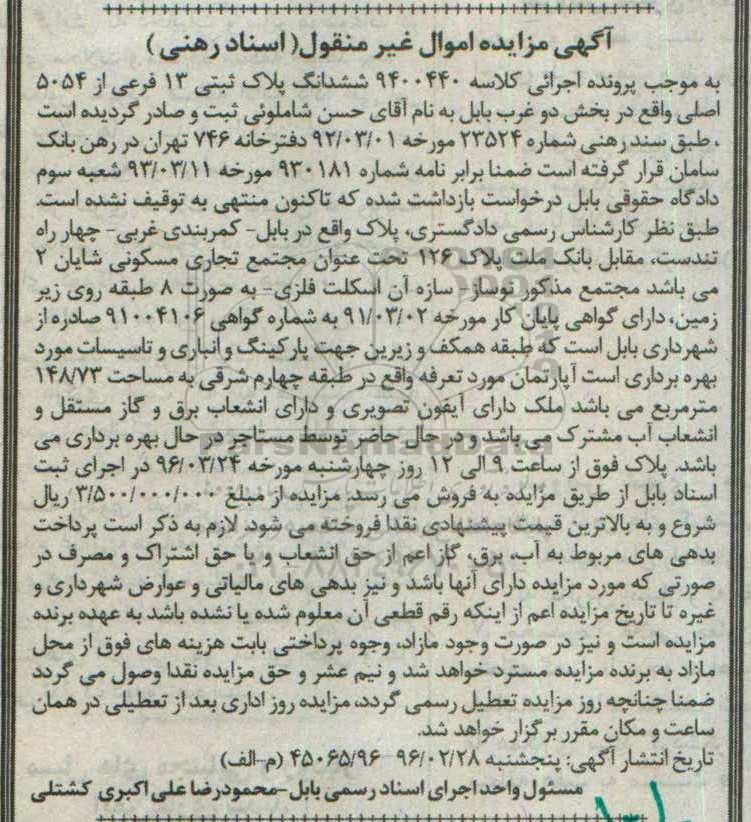 آگهی مزایده اموال غیر منقول( اسناد رهنی )
به موجب پرونده اجرائی کلاسه ۹۴۰۰۴۴۰ ششدانگ پلاک ثبتی ۱۳ فرعی از ۵۰۵۴
اصلی واقع در بخش دو غرب بابل به نام آقای حسن شاملوئی ثبت و صادر گردیده است
، طبق سند رهنی شماره ۲۳۵۲۴ مورخه ۹۲/۰۳/۰۱ دفترخانه ۷۴۶ تهران در رهن بانک
سامان قرار گرفته است ضمنا برابر نامه شماره ۹۳۰۱۸۱ مورخه ۹۳/۰۳/۱۱ شعبه سوم
دادگاه حقوقی بابل درخواست بازداشت شده که تاکنون منتهی به توقیف نشده است.
طبق نظر کارشناس رسمی دادگستری، پلاک واقع در بابل- کمربندی غربی- چهار راه
تندست، مقابل بانک ملت پلاک ۱۲۶ تحت عنوان مجتمع تجاری مسکونی شایان ۲
می باشد مجتمع مذکور نوساز- سازه آن اسکلت فلزی- به صورت ۸ طبقه روی زیر
زمین، دارای گواهی پایان کار مورخه ۹۱/۰۳/۰۲ به شماره گواهی ۹۱۰۰۴۱۰۶ صادره از
شهرداری بابل است که طبقه همکف و زیرین جهت پارکینگ و انباری و تاسیسات مورد
بهره برداری است آپارتمان مورد تعرفه واقع در طبقه چهارم شرقی به مساحت ۱۴۸/۷۳
مترمربع می باشد ملک دارای آیفون تصویری و دارای انشعاب برق و گاز مستقل و
انشعاب آب مشترک می باشد و در حال حاضر توسط مستاجر در حال بهره برداری می
باشد. پلاک فوق از ساعت ۹ الی ۱۲ روز چهارشنبه مورخه ۹۶/۰۳/۲۴ در اجرای ثبت
اسناد بابل از طریق مزایده به فروش می رسد. مزایده از مبلغ ۳/۵۰۰/۰۰۰/۰۰۰ ریال
شروع و به بالاترین قیمت پیشنهادی نقدا فروخته می شود. لازم به ذکر است پرداخت
بدهی های مربوط به آب، برق، گاز اعم از حق انشعاب و یا حق اشتراک و مصرف در
صورتی که مورد مزایده دارای آنها باشد و نیز بدهی های مالیاتی و عوارض شهرداری و
غیره تا تاریخ مزایده اعم از اینکه رقم قطعی آن معلوم شده یا نشده باشد به عهده برنده
مزایده است و نیز در صورت وجود مازاد، وجوه پرداختی بابت هزینه های فوق از محل
مازاد به برنده مزایده مسترد خواهد شد و نیم عشر و حق مزایده نقدا وصول می گردد
ضمنا چنانچه روز مزایده تعطیل رسمی گردد، مزایده روز اداری بعد از تعطیلی در همان
ساعت و مکان مقرر برگزار خواهد شد.
تاریخ انتشار آگهی: پنجشنبه ۹۶/۰۲/۲۸ ۴۵۰۶۵/۹۶ (م-الف)
مسئول واحد اجرای اسناد رسمی بابل-محمودرضا علی اکبری کشتلی
ParsNamadData